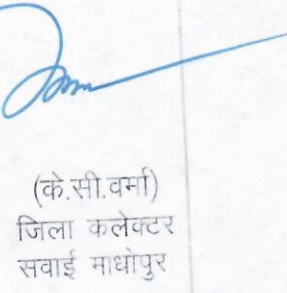 (के.सी.वर्मा)
जिला कलेक्टर
सवाई माधोपुर